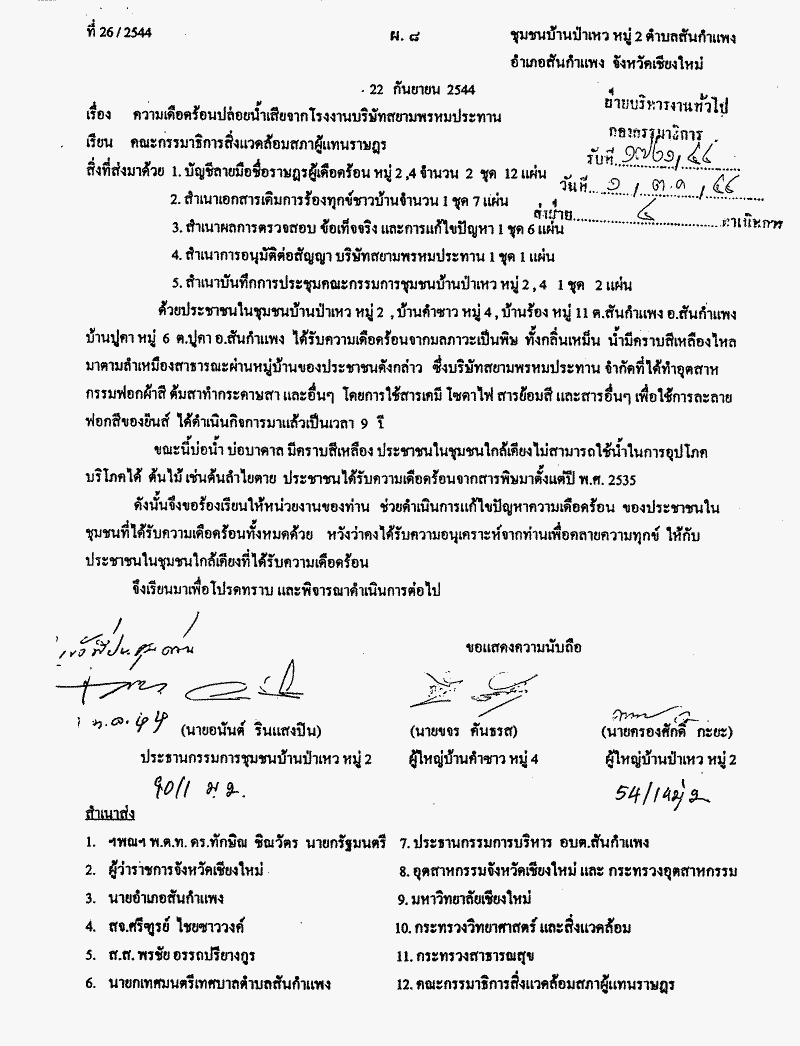 ที่ 26 / 2544
ผ. ๘
ชุมชนบ้านป่าเหว หมู่ 2 ตำบลสันกำแพง
อำเภอสันกำแพง จังหวัดเชียงใหม่
22 กันยายน 2544
ฝ่ายบริหารงานทั่วไป
กองกรรมาธิการ
รับที่ ๑๗๖๑/๔๔
วันที่ ๑ / ต.ค / ๔๔
ส่งฝ่าย ๔ ดำเนินการ
เรื่อง ความเดือดร้อนปล่อยน้ำเสียจากโรงงานบริษัทสยามพรหมประทาน
เรียน คณะกรรมาธิการสิ่งแวดล้อมสภาผู้แทนราษฎร
สิ่งที่ส่งมาด้วย 1. บัญชีลายมือชื่อราษฎรผู้เดือดร้อน หมู่ 2 ,4 จำนวน 2 ชุด 12 แผ่น
2. สำเนาเอกสารเดิมการร้องทุกข์ชาวบ้านจำนวน 1 ชุด 7 แผ่น
3. สำเนาผลการตรวจสอบ ข้อเท็จจริง และการแก้ไขปัญหา 1 ชุด 6 แผ่น
4. สำเนาการอนุมัติต่อสัญญา บริษัทสยามพรหมประทาน 1 ชุด 1 แผ่น
5. สำเนาบันทึกการประชุมคณะกรรมการชุมชนบ้านป่าเหว หมู่ 2 , 4 1 ชุด 2 แผ่น
ด้วยประชาชนในชุมชนบ้านป่าเหว หมู่ 2 , บ้านคำซาว หมู่ 4 , บ้านร้อง หมู่ 11 ต.สันกำแพง อ.สันกำแพง
บ้านปูคา หมู่ 6 ต.ปูคา อ.สันกำแพง ได้รับความเดือดร้อนจากมลภาวะเป็นพิษ ทั้งกลิ่นเหม็น น้ำมีคราบสีเหลืองไหล
มาตามลำเหมืองสาธารณะผ่านหมู่บ้านของประชาชนดังกล่าว ซึ่งบริษัทสยามพรหมประทาน จำกัดที่ได้ทำอุตสาห
กรรมฟอกผ้าสี ต้มสาทำกระดาษสา และอื่นๆ โดยการใช้สารเคมี โซดาไฟ สารย้อมสี และสารอื่นๆ เพื่อใช้การละลาย
ฟอกสีของยีนส์ ได้ดำเนินกิจการมาแล้วเป็นเวลา 9 ปี
ขณะนี้บ่อน้ำ บ่อบาดาล มีคราบสีเหลือง ประชาชนในชุมชนใกล้เคียงไม่สามารถใช้น้ำในการอุปโภค
บริโภคได้ ต้นไม้ เช่นต้นลำไยตาย ประชาชนได้รับความเดือดร้อนจากสารพิษมาตั้งแต่ปี พ.ศ. 2535
ดังนั้นจึงขอร้องเรียนให้หน่วยงานของท่าน ช่วยดำเนินการแก้ไขปัญหาความเดือดร้อน ของประชาชนใน
ชุมชนที่ได้รับความเดือดร้อนทั้งหมดด้วย หวังว่าคงได้รับความอนุเคราะห์จากท่านเพื่อคลายความทุกข์ ให้กับ
ประชาชนในชุมชนใกล้เคียงที่ได้รับความเดือดร้อน
จึงเรียนมาเพื่อโปรดทราบ และพิจารณาดำเนินการต่อไป
ขอแสดงความนับถือ
(นายอนันต์ รินแสงปิน) (นายขจร คันธรส) (นายครองศักดิ์ กะยะ)
ประธานกรรมการชุมชนบ้านป่าเหว หมู่ 2 ผู้ใหญ่บ้านคำซาว หมู่ 4 ผู้ใหญ่บ้านป่าเหว หมู่ 2
90/1 ม 2
54/1 หมู่ 2
สำเนาส่ง
1. ฯพณฯ พ.ต.ท. ดร.ทักษิณ ชินวัตร นายกรัฐมนตรี
2. ผู้ว่าราชการจังหวัดเชียงใหม่
3. นายอำเภอสันกำแพง
4. สจ.ศรีฑูรย์ ไชยซาววงค์
5. ส.ส. พรชัย อรรถปรียางกูร
6. นายกเทศมนตรีเทศบาลตำบลสันกำแพง
7. ประธานกรรมการบริหาร อบต.สันกำแพง
8. อุตสาหกรรมจังหวัดเชียงใหม่ และ กระทรวงอุตสาหกรรม
9. มหาวิทยาลัยเชียงใหม่
10. กระทรวงวิทยาศาสตร์ และสิ่งแวดล้อม
11. กระทรวงสาธารณสุข
12. คณะกรรมาธิการสิ่งแวดล้อมสภาผู้แทนราษฎร